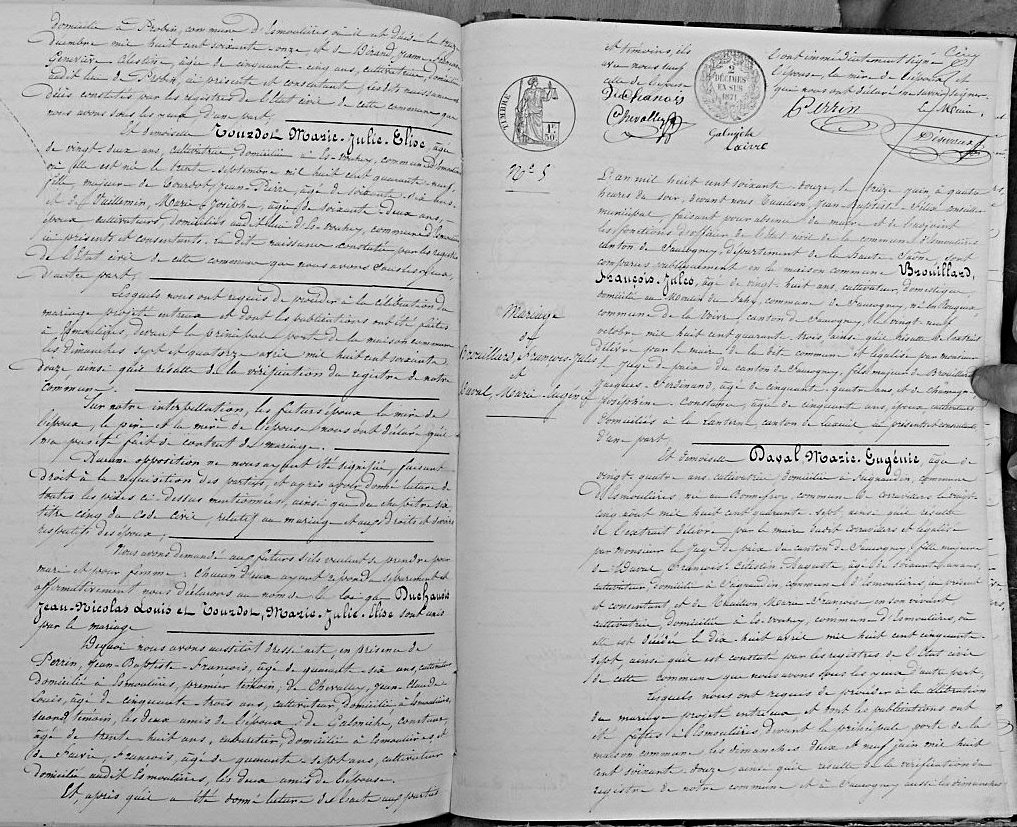 domicilié à Probin, commune d'Esmoulières où il est
décembre mil huit cent soixante onze et de
Geneviève Célestine, âgée de cinquante cinq ans, cultivateur, domiciliée
audit lieu de Probin, ci présente et consentante, ses dits naissance et
décès constatés par les registres de l'état civil de cette commune que
nous avons sous les yeux d'une part,
Et demoiselle Tourdot, Marie-Julie-Elise, âgée
de vingt deux ans, cultivatrice, domiciliée à Es-Vouhey, commune d'Esmoulières
où elle est née le trente septembre mil huit cent quarante neuf,
fille majeure de Tourdot, Jean-Pierre, âgé de soixante
et de Vuillemin, Marie Josèphe, âgée de soixante deux ans,
époux cultivateurs, domiciliés audit lieu d'Es-Vouhey, commune d'Esmoulières
ci présents et consentants. La dite naissance constatée par les registres
de l'État civil de cette commune que nous avons sous les yeux,
d'autre part,
Lesquels nous ont requis de procéder à la célébration du
mariage projeté entr'eux et dont les publications ont été faites
à Esmoulières, devant la principale porte de la maison commune
les dimanches sept et quatorze avril mil huit cent soixante
douze ainsi qu'il résulte de la vérification du registre de notre
commune.
Sur notre interpellation, les futurs époux la mère de
l'époux, le père et la mère de l'épouse nous ont déclaré qu'il
n'a pas été fait de contrat de mariage.
Aucune opposition ne nous ayant été signifiée, faisant
droit à la réquisition des parties, et après avoir donné lecture de
toutes les pièces ci-dessus mentionnées, ainsi que du chapitre six
titre cinq du Code Civil, relatif au mariage et aux droits et devoirs
respectifs des époux,
Nous avons demandé aux futurs s'ils veulent se prendre pour
mari et pour femme; chacun d'eux ayant répondu séparément et
affirmativement nous déclarons au nom de la loi que Duchanois
Jean-Nicolas Louis et Tourdot, Marie-Julie-Elise sont unis
par le mariage
De quoi nous avons aussitôt dressé acte, en présence de
Perrin, Jean-Baptiste-François, âgé de quarante six ans, cultivateur
domicilié à Esmoulières, premier témoin, de Chevalley, Jean-Claude
Louis, âgé de cinquante trois ans, cultivateur domicilié à Esmoulières,
second témoin, les deux amis de l'époux, de Galmiche, Constant
âgé de trente huit ans, cabaretier, domicilié à Esmoulières et
de Faivre, François, âgé de quarante sept ans, cultivateur
domicilié audit Esmoulières, les deux amis de l'épouse.
Et, après qu'il a été donné lecture de l'acte aux parties
et témoins, ils
avec nous sauf
celle de l'époux
Duchanois
Chevalley
TIMBRE
1F 50
2 DÉCIMES EN SUS 1871
l'ont immédiatement signé
l'épouse, la mère de l'époux et
qui nous ont déclaré ne savoir signer.
Perrin
le Maire,
Galmiche
Faivre
N° 5
Mariage
de
Brouillard, François-Jules
et
Daval, Marie Eugénie
L'an mil huit cent soixante-douze, le douze juin à quatre
heures du soir, devant nous Chaillon, Jean-Baptiste Félix conseiller
municipal, faisant pour absence du maire et de l'adjoint
les fonctions d'officier de l'État civil de la commune d'Esmoulières
canton de Faucogney, département de la Haute-Saône, sont
comparus publiquement en la maison commune Brouillard,
François-Jules, âgé de vingt-huit ans, cultivateur domestique,
domicilié au commune de Faucogney, né à la
commune de la Voivre, canton de Faucogney, le vingt-neuf
octobre mil huit cent quarante-trois, ainsi que résulte de l'extrait
délivré par le maire de la dite commune et légalisé par monsieur
le juge de paix du canton de Faucogney, fils majeur de Brouillard
Jacques-Ferdinand, âgé de cinquante quatre ans, et de
Joséphine Constance, âgée de cinquante ans, époux cultivateurs
domiciliés à la canton de Luxeuil, ci présents et consentants
d'une part,
Et demoiselle Daval Marie-Eugénie, âgée de
vingt-quatre ans, cultivatrice domiciliée à commune
d'Esmoulières née au commune de Corravillers le vingt-
cinq août mil huit cent quarante-sept, ainsi que résulte
de l'extrait délivré par le maire dudit Corravillers et légalisé
par monsieur le juge de paix du canton de Faucogney, fille majeure
de Daval, François-Célestin-Auguste, âgé de soixante ans,
cultivateur domicilié à commune d'Esmoulières, ci présent
et consentant et de Chaillon Marie-Françoise en son vivant
cultivatrice domiciliée à Es-Vouhey, commune d'Esmoulières, où
elle est décédée le dix-huit avril mil huit cent cinquante-
sept ainsi qu'il est constaté par les registres de l'État civil
de cette commune que nous avons sous les yeux d'autre part,
Lesquels nous ont requis de procéder à la célébration
du mariage projeté entr'eux et dont les publications ont
été faites à Esmoulières devant la principale porte de la
maison commune les dimanches deux et neuf juin mil huit
cent soixante-douze ainsi que résulte de la vérification du
registre de notre commune et à Faucogney aussi les dimanches